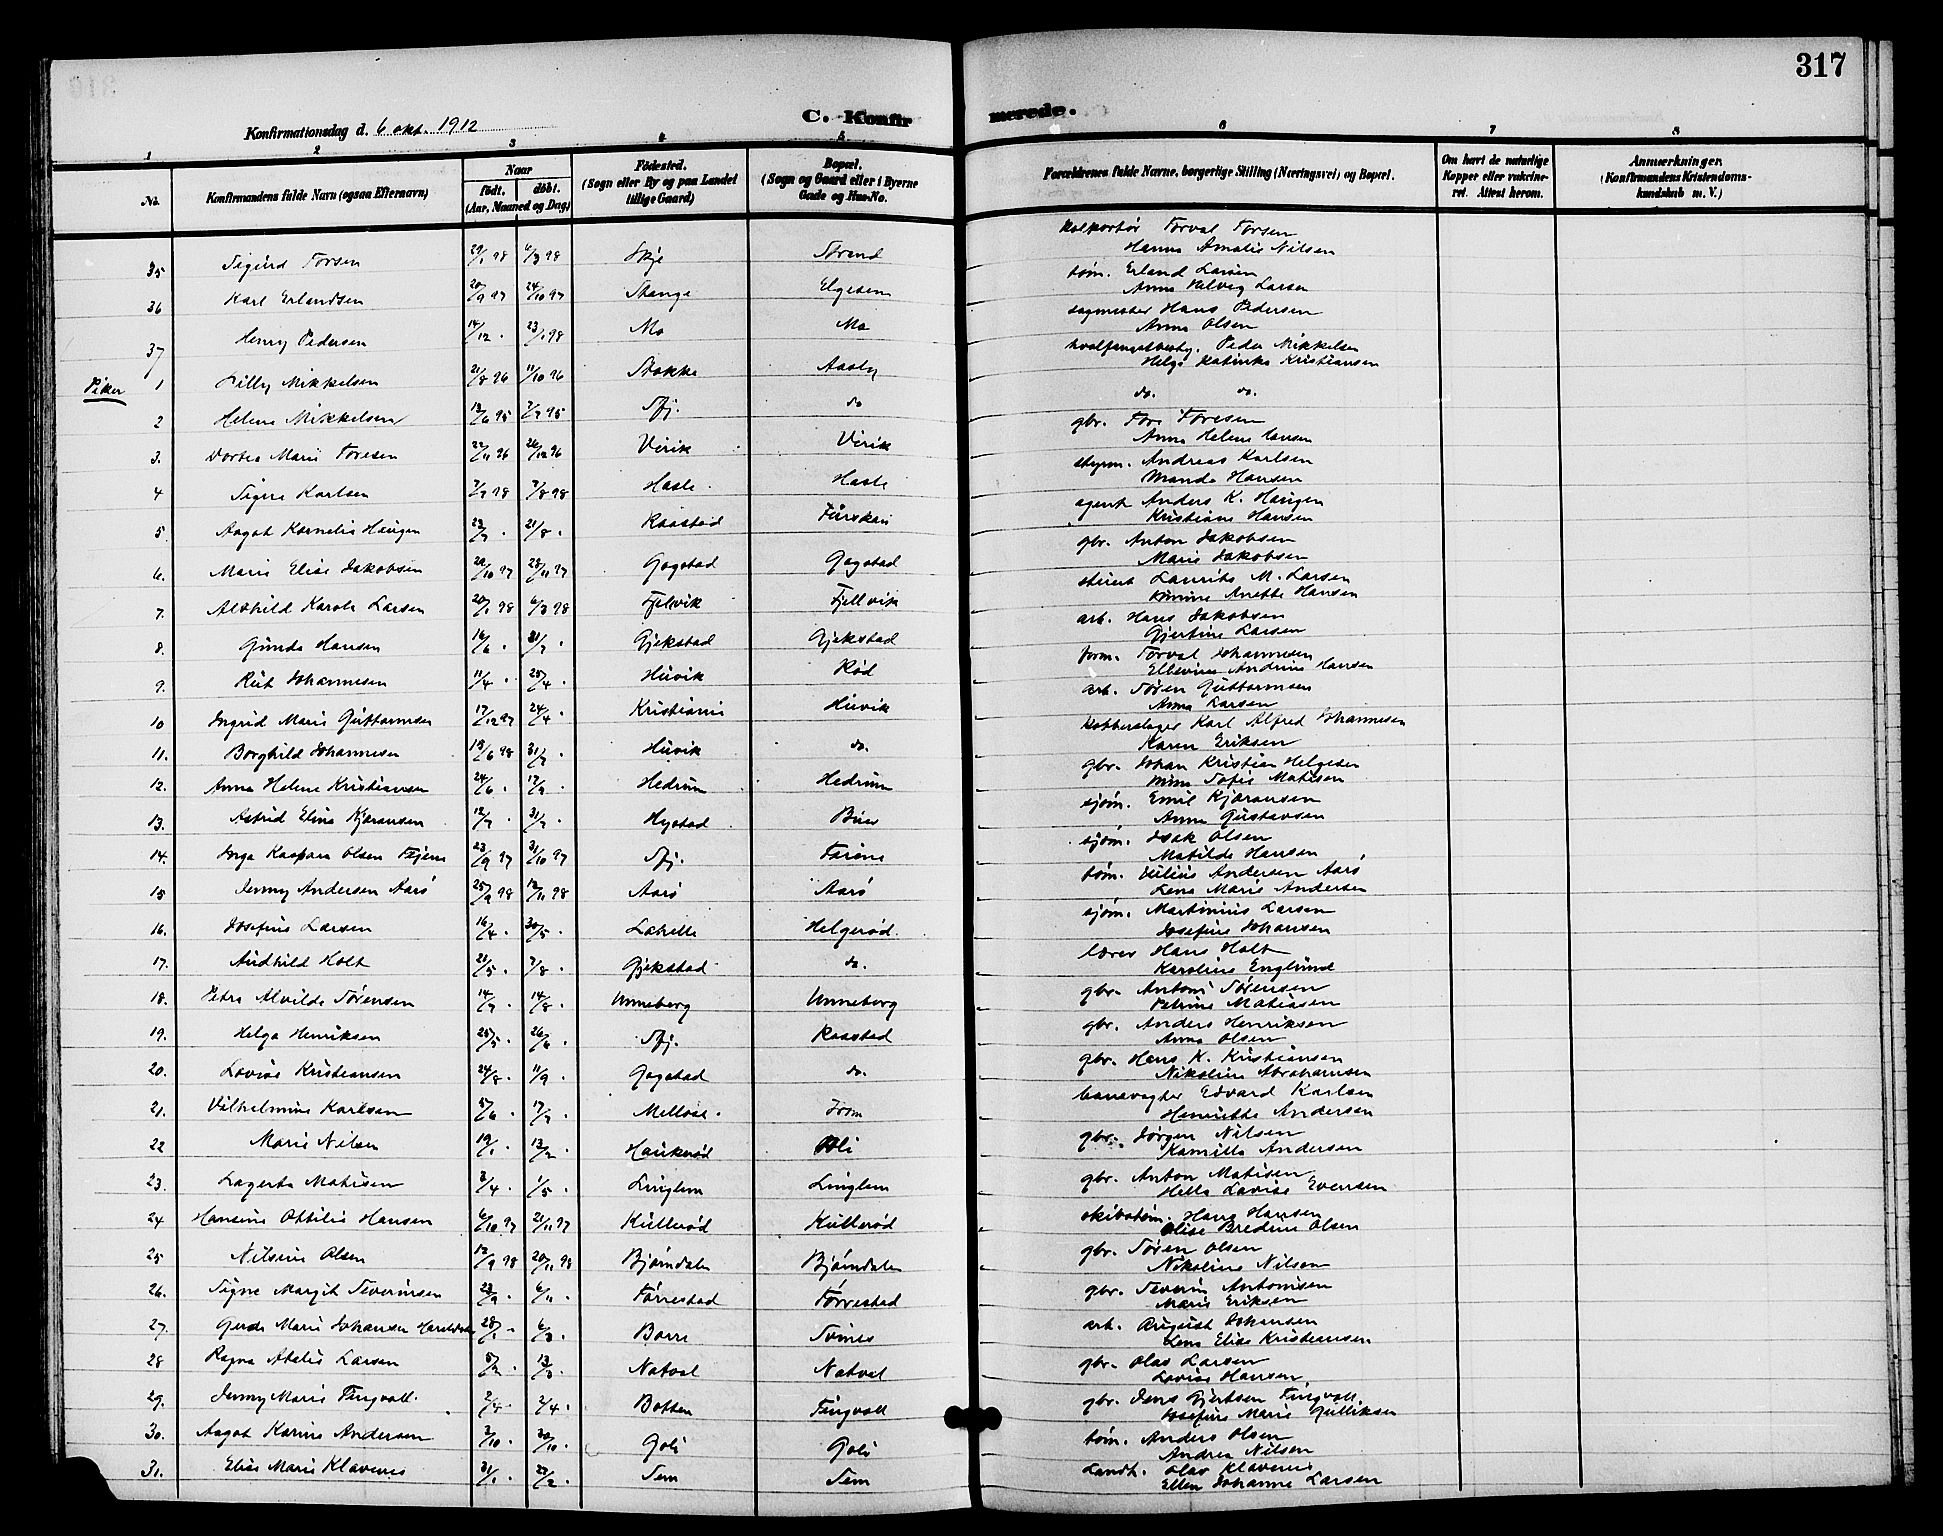 317
C. Konfirmerede.
Konfirmationsdag d. 6 okt. 1912
1 2 3 4 5 6 7 8
No.
Konfirmandens fulde Navn (ogsaa Efternavn)
Naar
födt. döbt.
(Aar, Maaned og Dag)
Födested.
(Sogn eller By og paa Landet
tillige Gaard)
Bopæl.
(Sogn og Gaard eller i Byerne
Gade og Hus-No.
Forældrenes fulde Navne, borgerlige Stilling (Næringsvei) og Bopæl.
Om havt de naturlige
Kopper eller vakcine-
ret. Attest herom.
Anmærkninger.
(Konfirmandens Kristendoms-
kundskab m. V.)
35 Sigurd Torsen 29/1 98 6/3 98 Skje Strand kolportør Torval Torsen
Hanna Amalie Nilsen
36 Karl Erlandsen 20/9 97 24/10 97 Stange Elgesem tøm. Erland Larsen
Anna Helvig Larsen
37 Henry Pedersen 14/12 . 23/1 98 Mo Mo sagmester Hans Pedersen
Anna Olsen
Piker
1 Lilly Mikkelsen 21/8 96 11/10 96 Stokke Aasly hvalfangstbesty. Peder Mikkelsen
Helga Katinka Kristiansen
2 Helene Mikkelsen 18/6 95 7/7 95 Sfj. do do. do.
3. Dortea Marie Toresen 22/11 96 26/12 96 Virik Virik gbr. Tore Toresen
Anna Helene Hansen
4 Signe Karlsen 7/7 98 7/8 98 Hasle Hasle styrm. Andreas Karlsen
Manda Hansen
5. Aagot Kornelia Haugen 23/7 . 21/8 . Raastad Furskau agent Anders K. Haugen
Kristiane Hansen
6. Marie Elise Jakobsen 22/10 97 28/11 97 Gogstad Gogstad gbr. Anton Jakobsen
Marie Jakobsen
7. Alvhild Karola Larsen 20/1 98 6/3 98 Fjelvik Fjellvik stuert Laurits M. Larsen
Anette Hansen
8. Gunda Hansen 16/6 . 31/7 . Gjekstad Gjekstad arb. Hans Jakobsen
Gjertine Larsen
9. Rut Johannesen 11/4 . 25/4 . Huvik Rød form. Torval Johannesen
Ellevine Andrine Hansen
10 Ingrid Marie Guttormsen 17/12 97 24/4 . Kristiania Huvik arb. Søren Guttormsen
Anna Larsen
11. Borghild Johannesen 18/6 98 31/7 . Huvik do. kobberslager Karl Alfred Johannesen
Karen Eriksen
12. Anna Helene Kristiansen 24/6 . 17/7 . Hedrum Hedrum gbr. Johan Kristian Helgesen
Mina Sofie Matisen
13. Astrid Elina Kjæransen 12/7 . 31/7 . Hystad Buer sjøm. Emil Kjæransen
Anna Gustavsen
14. Inga Kaspara Olsen 23/9 97 31/10 97 Sfj. sjøm. Isak Olsen
Matilde Hansen
15 Jenny Andersen Aarø 25/9 98 12/11 98 Aarø Aarø tøm. Julius Andersen Aarø
Lena Marie Andersen
16. Josefine Larsen 16/4 . 30/5 . Lahelle Helgerød. sjøm. Martinius Larsen
Josefine Johansen
17. Audhild Holt 21/5 . 7/8 . Gjekstad do. lærer Hans Holt
Karoline Englund
18. Petra Alvilda Sørensen 14/7 . 14/8 . Unneberg Unneberg gbr. Antoni Sørensen
Petrine Matiasen
19. Helga Henriksen 25/5 . 26/6 . Sfj. Raastad gbr. Anders Henriksen
Anna Olsen
20. Lovise Kristiansen 24/8 . 11/9 . Gogstad do. gbr. Hans K. Kristiansen
Nikoline Abrahamsen
21. Vilhelmine Karlsen 5/6 . 17/7 . Melløse. From banevogter Edvard Karlsen
Henriette Andersen
22 Marie Nilsen 19/1 . 13/2 . Haukerød Øli gbr. Jørgen Nilsen
Kamilla Andersen
23. Lagerta Matisen 3/4 . 1/5 . Linglem Linglem gbr. Anton Matisen
Hella Lovise Evensen
24 Hansine Ottilie Hansen 6/10 97 21/11 97 Kullerød Kullerød skibstøm. Hans Hansen
Olise Bredine Olsen
25 Nilsine Olsen 12/9 98 20/11 98 Bjørndalen Bjørndalen gbr. Søren Olsen
Nikoline Nilsen
26. Signe Margit Severinsen 23/9 . 6/11 . Tørrestad Tørrestad gbr. Severin Antonisen
Marie Eriksen
27. Gerda Marie Johansen 28/1 . 6/3 . Borre arb. August Johansen
Lena Elise Kristiansen
28 Ragna Atalie Larsen 8/2 . 13/3 . Natval Natvel gbr. Olav Larsen
Lovise Hansen
29. Jenny Marie Tingvoll. 2/4 . Botten Tingvoll gbr. Jens Gjertsen Tingvoll
Josefine Marie Gulliksen
30. Aagot Karine Andersen 2/10 . 30/10 . Goli Goli tøm. Anders Olsen
Andrea Nilsen
31. Elise Marie Klavenes 31/1 . 27/2 . Sem Sem Landh. Olav Klavenes
Ellen Johanne Larsen